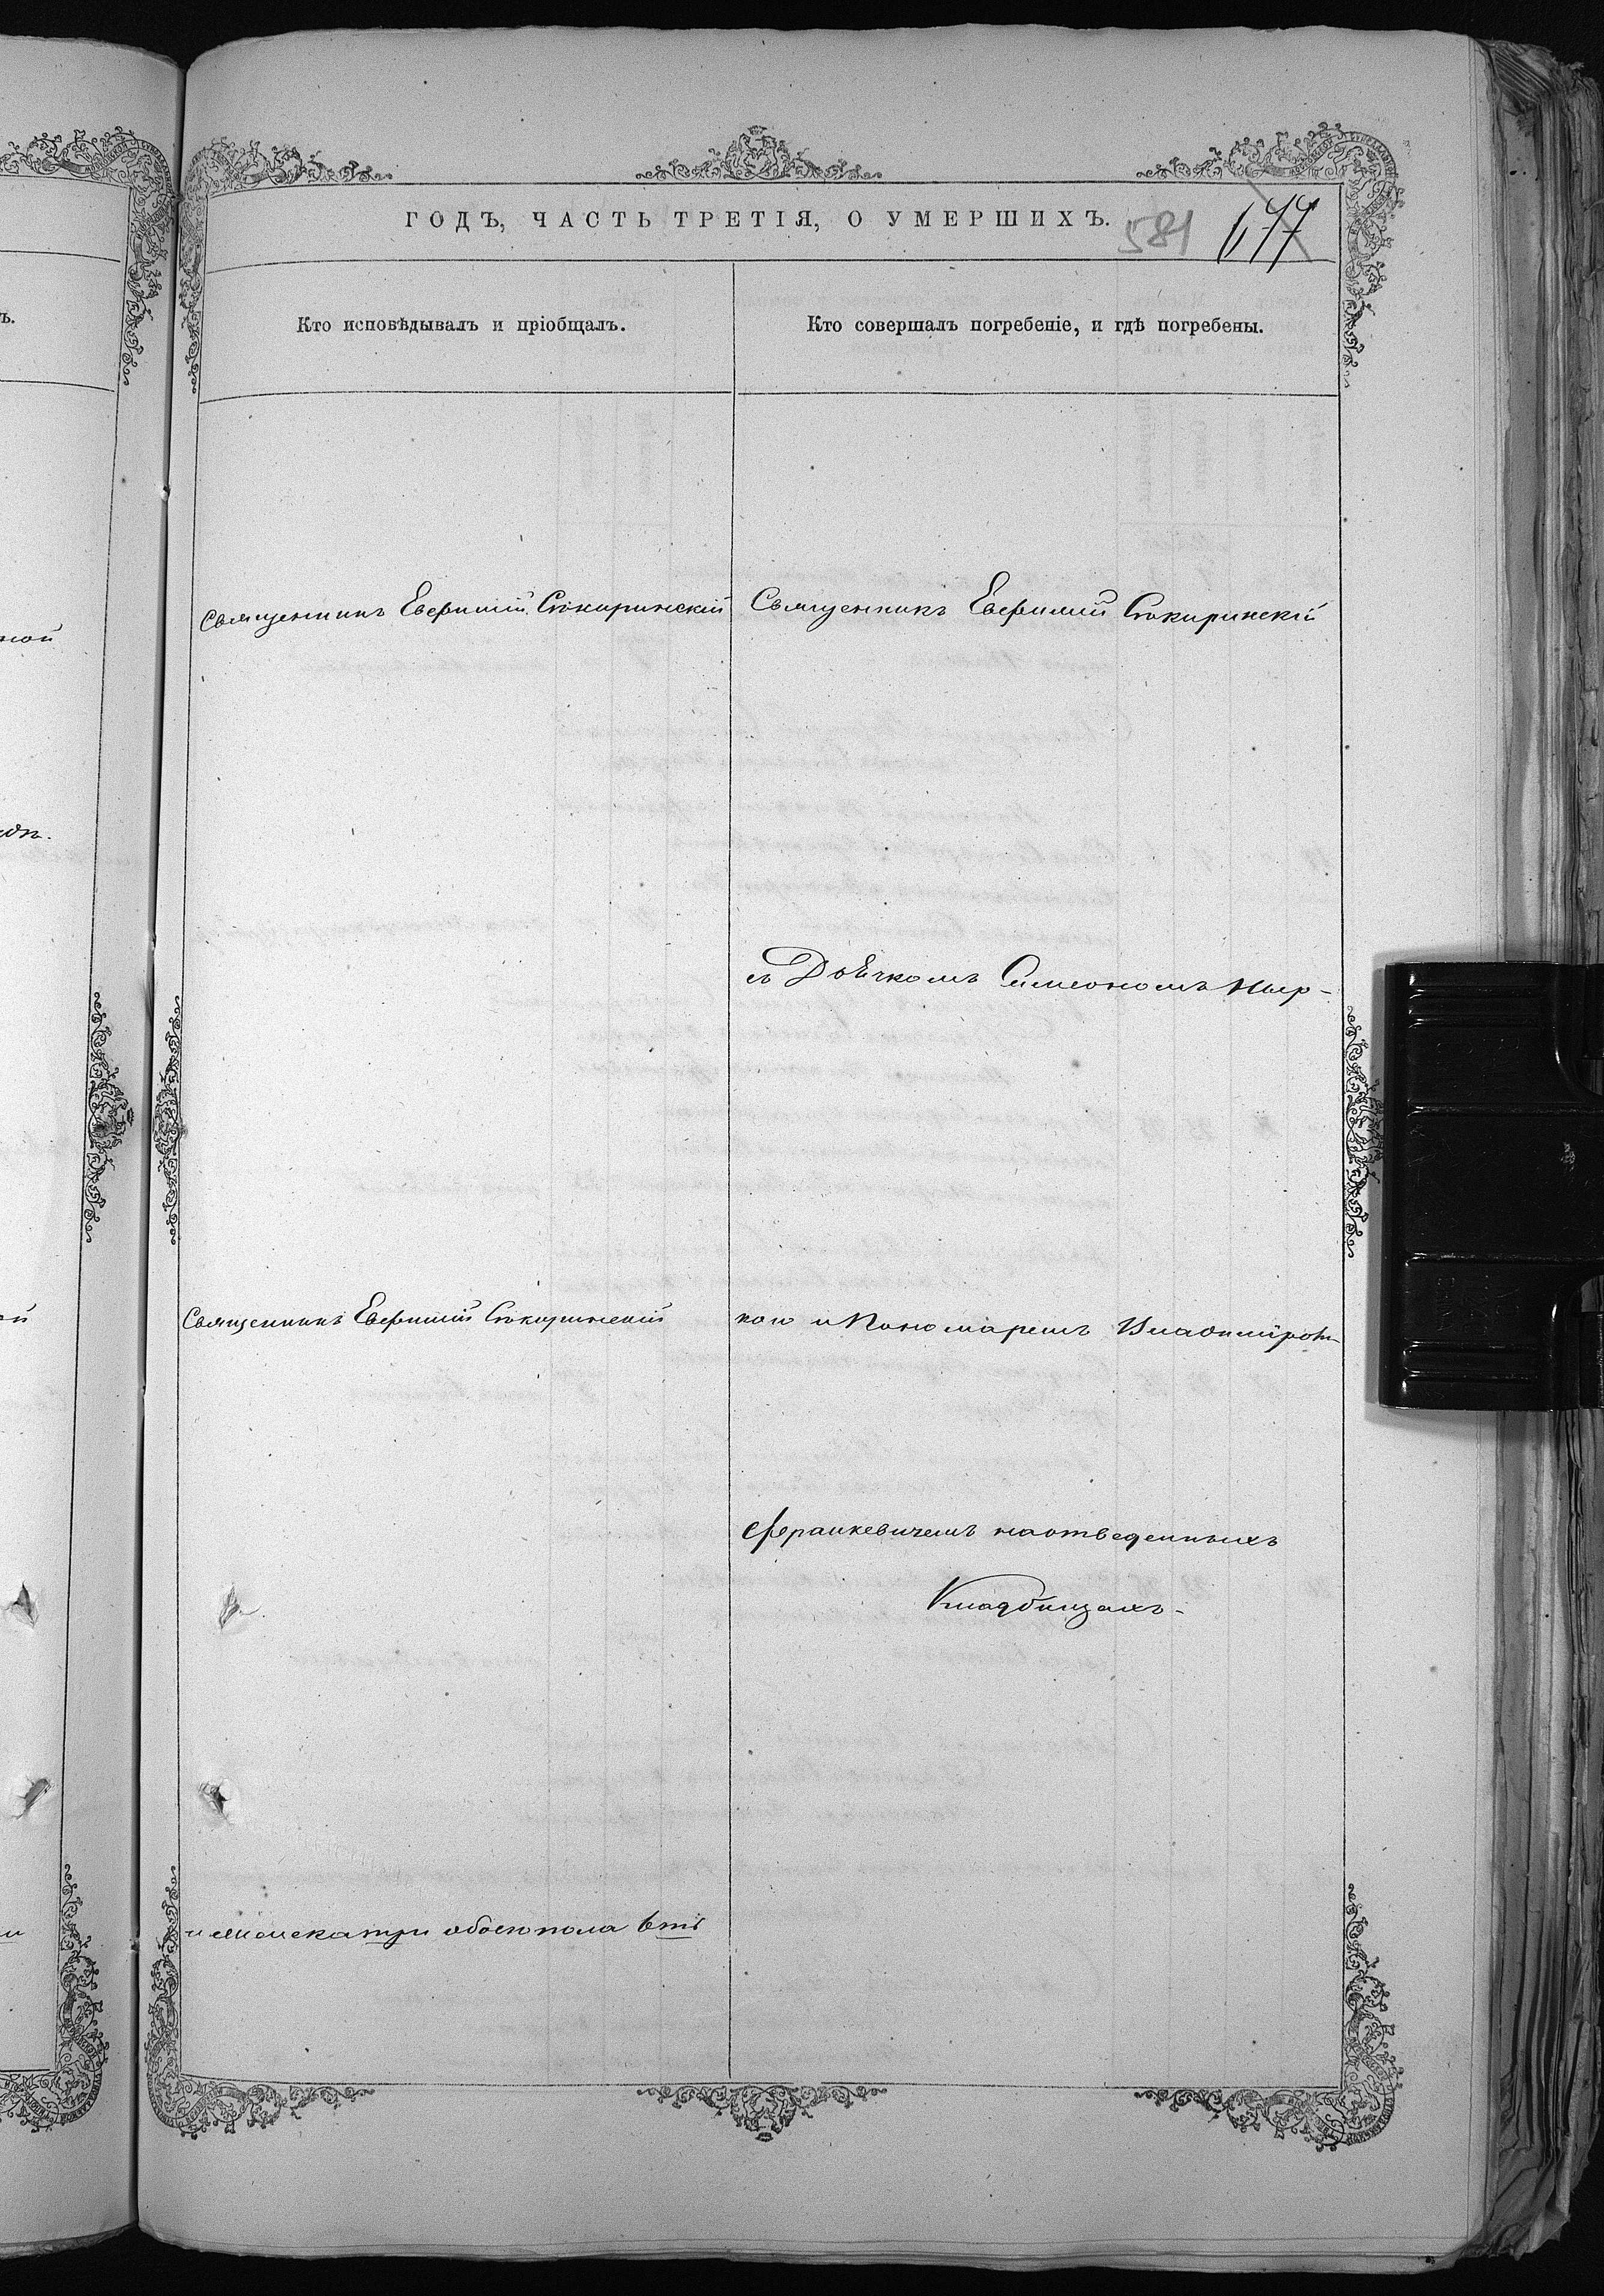 ГОДЪ, ЧАСТЬ ТРЕТІЯ, О УМЕРШИХЪ.
581 677
Кто исповѣдывалъ и пріобщалъ.
Кто совершалъ погребеніе, и гдѣ погребены.
Священникъ Евфимій Сѣкиринскій
Священникъ Евфимій Сѣкиринскій
ной
съ Дьячкомъ Симеономъ
Священникъ Евфимій Сѣкиринскій
кою и Пономаремъ Владиміромъ
Франкевичемъ на отведенныхъ
Кладбищахъ
три обоего пола